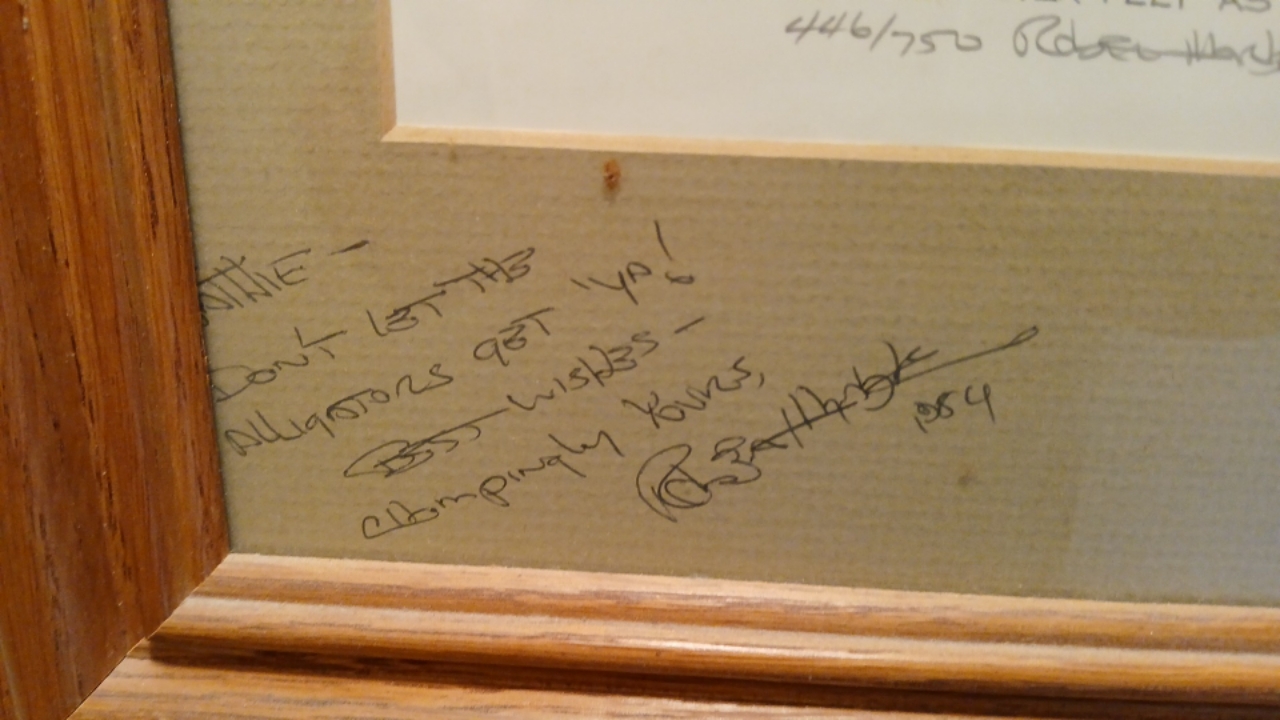 AS
446/750 Robert
NTHIE -
Don't LET THE
Alligators get 'ya!
Best wishes -
Chompingly Yours,
Robert
1984